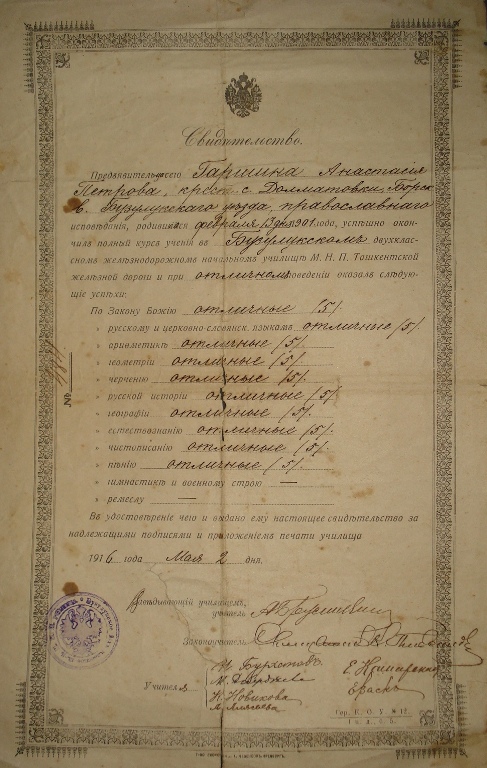 Свидѣтельство.
Гаршина Анастасія
Петрова, крест. с. Долматовки, Борск.
в. Бузулукскаго уѣзда, православнаго
исповѣданія, родившаяся февраля 13 дня 1901 года, успѣшно окон-
чила полный курсъ ученія въ Бузулукскомъ двухклас-
сномъ желѣзнодорожномъ начальномъ училищѣ М. Н. П. Ташкентской
желѣзной дороги и при отличномъ поведеніи оказала слѣдую-
щіе успѣхи:
По Закону Божію отличные /5/.
» русскому и церковно-славянск. языкамъ отличные /5/.
» ариѳметикѣ отличные /5/.
» геометріи отличные /5/.
» черченію отличные /5/.
» русской исторіи отличные /5/.
» географіи отличные /5/.
» естествознанію отличные /5/.
» чистописанію отличные /5/.
» пѣнію отличные /5/.
» гимнастикѣ и военному строю —
» ремеслу —
№
Въ удостовѣреніе чего и выдано ему настоящее свидѣтельство за
надлежащими подписями и приложеніемъ печати училища
1916 года Мая 2 дня.
Завѣдывающій училищемъ,
учитель
Законоучитель
Учителя
Н. Новикова